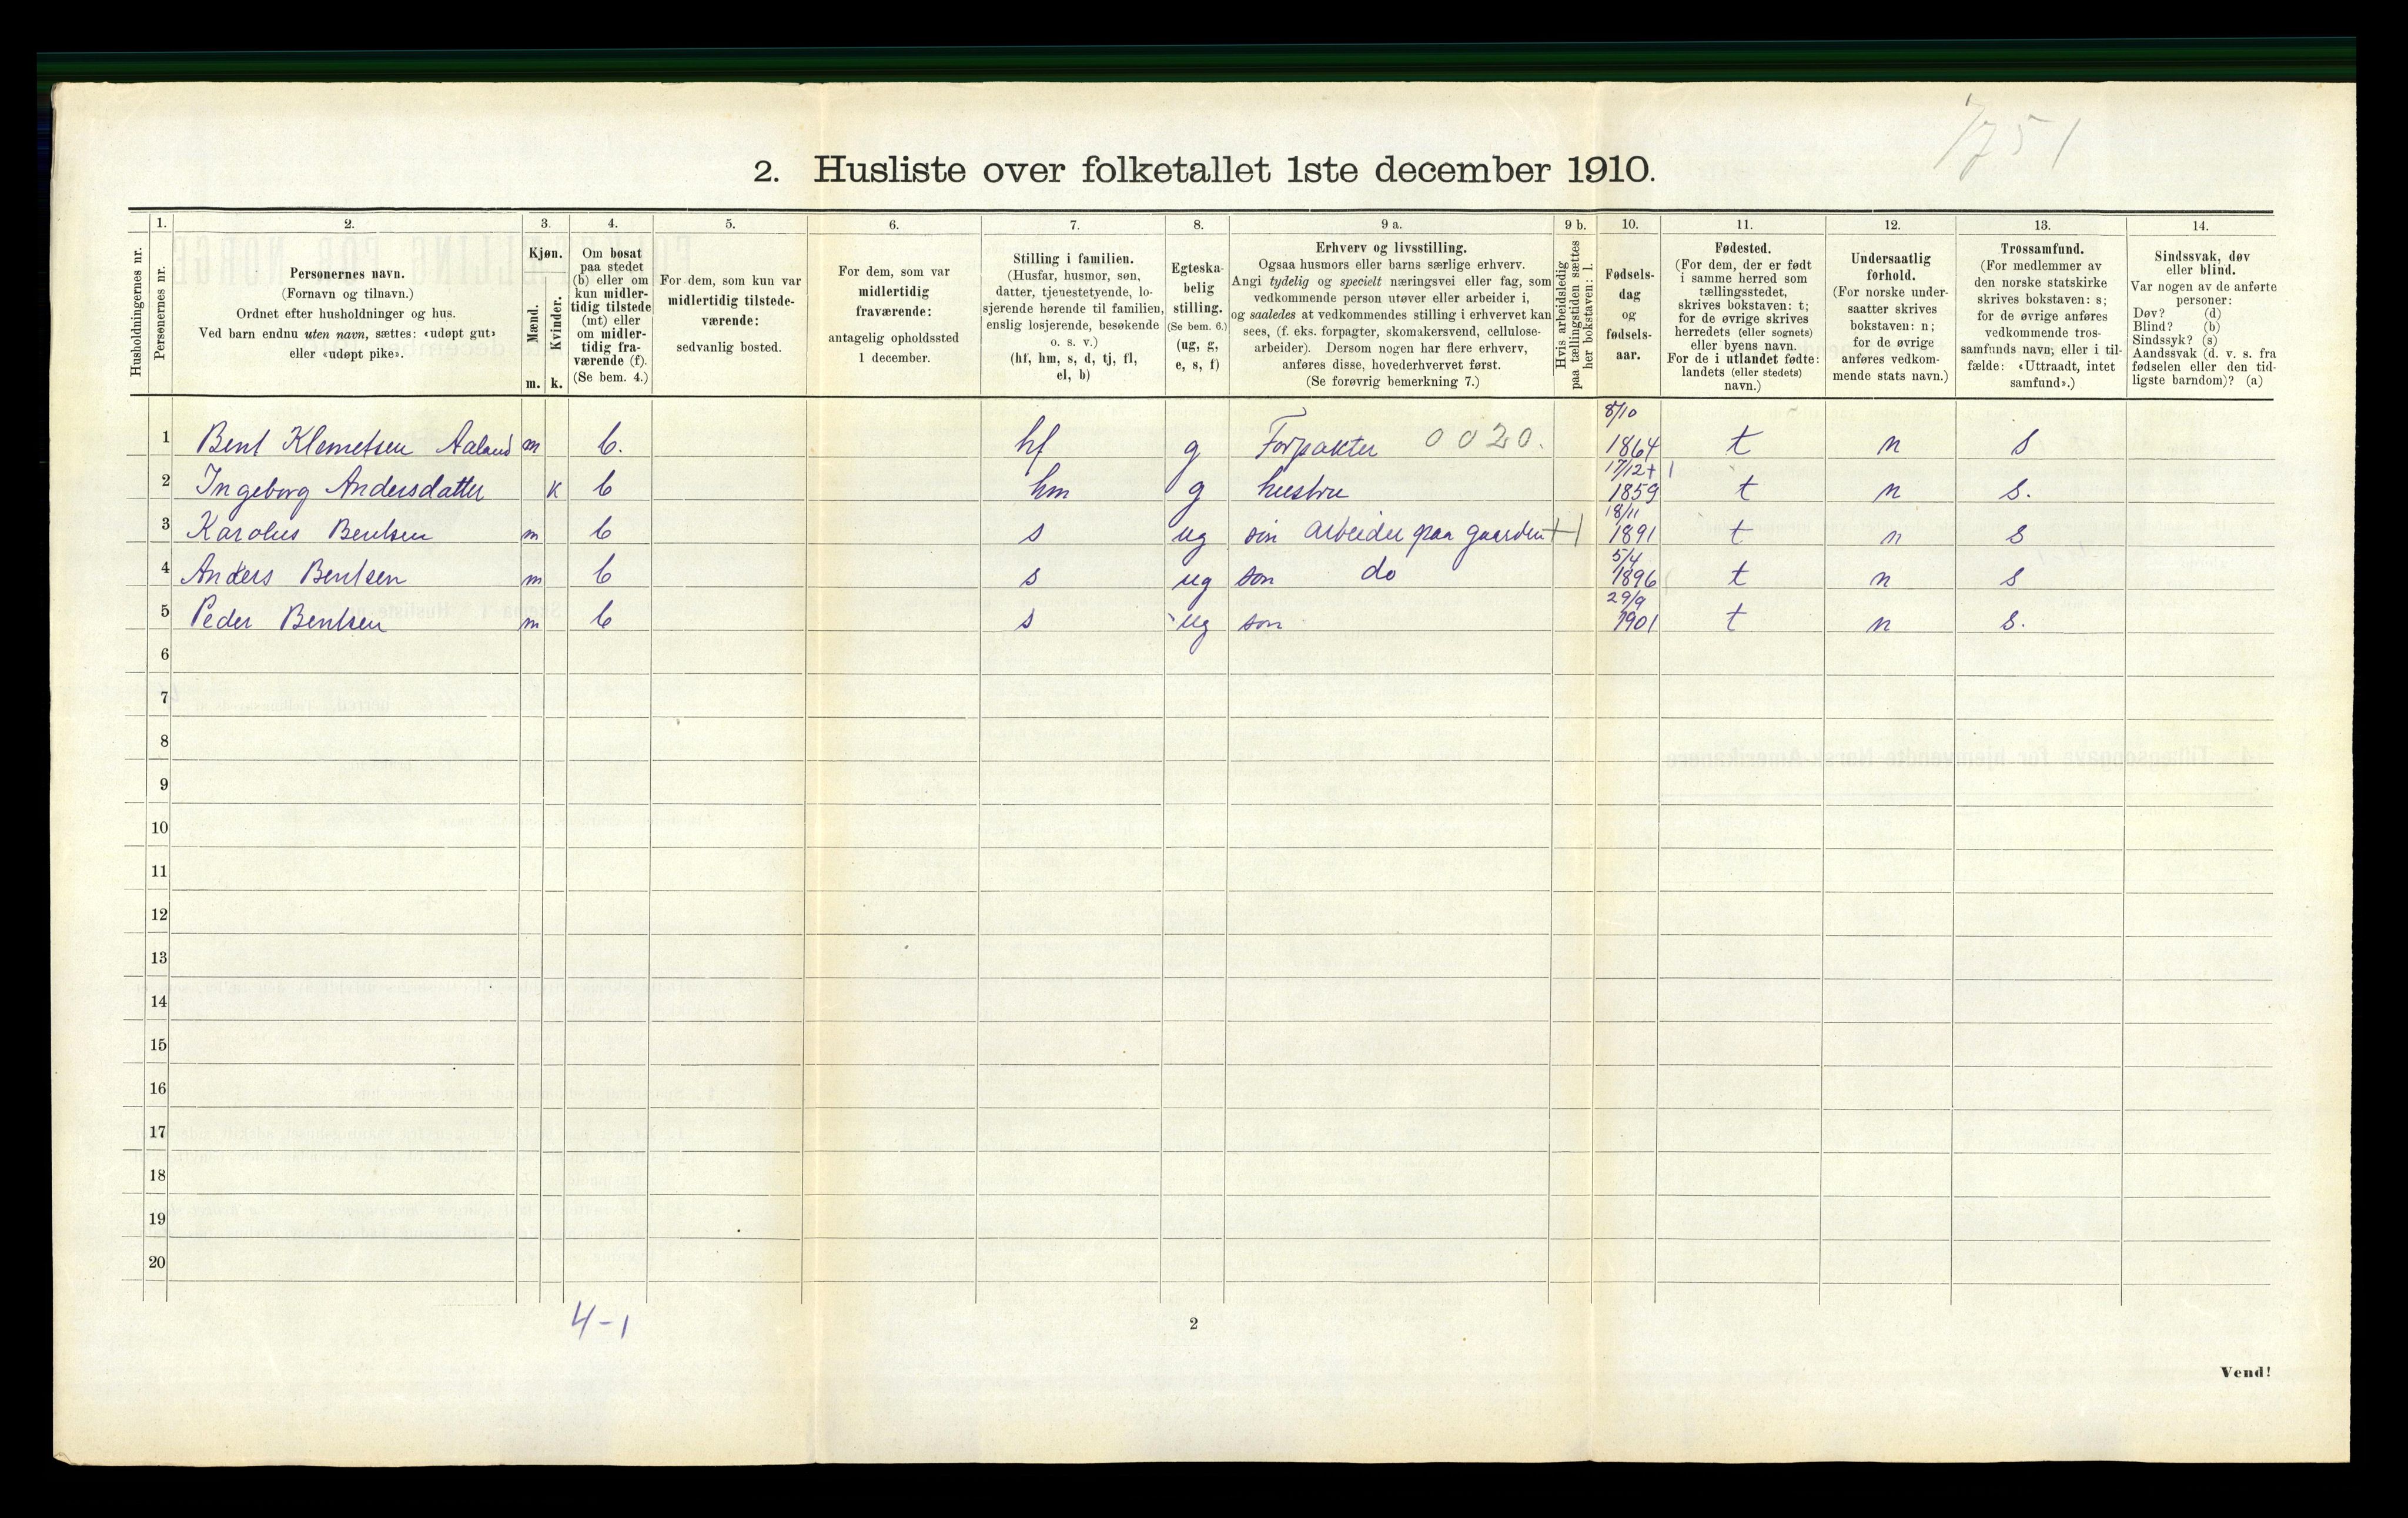 1751
2. Husliste over folketallet 1ste december 1910.
1. 2. 3. 4. 5. 6. 7. 8. 9 a. 9 b. 10. 11. 12. 13. 14.
Husholdningernes nr.
Personernes nr.
Personernes navn.
(Fornavn og tilnavn.)
Ordnet efter husholdninger og hus.
Ved barn endnu uten navn, sættes: «udøpt gut»
eller «udøpt pike».
Kjøn.
Mænd.
Kvinder.
m. k.
Om bosat
paa stedet
(b) eller om
kun midler-
tidig tilstede
(mt) eller
om midler-
tidig fra-
værende (f).
(Se bem. 4.)
For dem, som kun var
midlertidig tilstede-
værende:
sedvanlig bosted.
For dem, som var
midlertidig
fraværende:
antagelig opholdssted
1 december.
Stilling i familien.
(Husfar, husmor, søn,
datter, tjenestetyende, lo-
sjerende hørende til familien,
enslig losjerende, besøkende
o. s. v.)
(hf, hm, s, d, tj, fl,
el, b)
Egteska-
belig
stilling.
(Se bem. 6.)
(ug, g,
e, s, f)
Erhverv og livsstilling.
Ogsaa husmors eller barns særlige erhverv.
Angi tydelig og specielt næringsvei eller fag, som
vedkommende person utøver eller arbeider i,
og saaledes at vedkommendes stilling i erhvervet kan
sees, (f. eks. forpagter, skomakersvend, cellulose-
arbeider). Dersom nogen har flere erhverv,
anføres disse, hovederhvervet først.
(Se forøvrig bemerkning 7.)
Hvis arbeidsledig
paa tællingstiden sættes
her bokstaven: l.
Fødsels-
dag
og
fødsels-
aar.
Fødested.
(For dem, der er født
i samme herred som
tællingsstedet,
skrives bokstaven: t;
for de øvrige skrives
herredets (eller sognets)
eller byens navn.
For de i utlandet fødte:
landets (eller stedets)
navn.)
Undersaatlig
forhold.
(For norske under-
saatter skrives
bokstaven: n;
for de øvrige
anføres vedkom-
mende stats navn.)
Trossamfund.
(For medlemmer av
den norske statskirke
skrives bokstaven: s;
for de øvrige anføres
vedkommende tros-
samfunds navn, eller i til-
fælde: «Uttraadt, intet
samfund».)
Sindssvak, døv
eller blind.
Var nogen av de anførte
personer:
Døv? (d)
Blind? (b)
Sindssyk? (s)
Aandssvak (d. v. s. fra
fødselen eller den tid-
ligste barndom)? (a)
8/10
1 Bent Klemetsen Aaland m b. hf g Forpakter 0020. 1864 t n s
17/12 +1
2 Ingeborg Andersdatter k b hm g hustru 1859 t n s.
18/11
3 Karolus Bentsen m b s ug søn arbeider paa gaarden +| 1891 t n s
5/4
4 Anders Bentsen m b s ug søn do 1896 t n s
29/9
5 Peder Bentsen m b s ug søn 1901 t n s.
6
7
8
9
10
11
12
13
14
15
16
17
18
19
20
4-1
2
Vend!